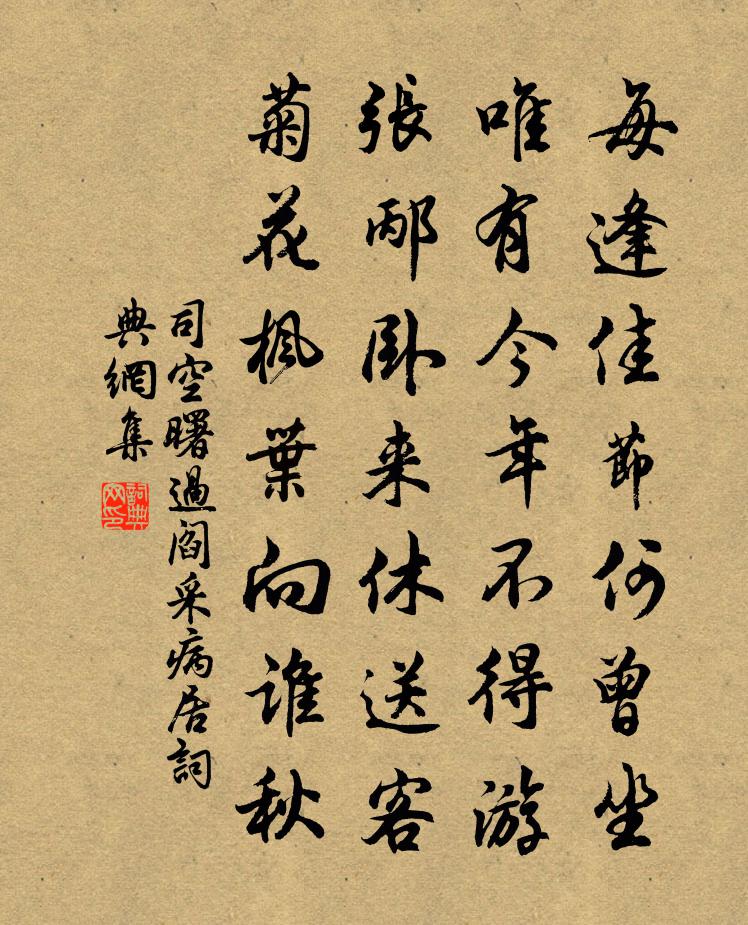 每逢佳節何曾坐
唯有今年不得游
張邴卧来休送客
菊花楓葉向誰秋
司空曙過閻采病居詞
典網集
詞典
网印